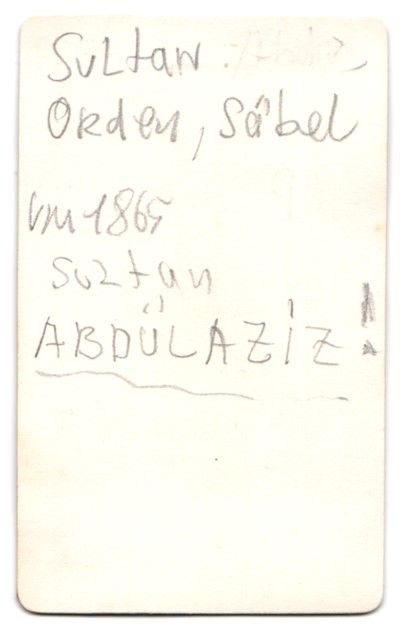 Sultan
Orden, Säbel
um 1865
Sultan
ABDÜLAZİZ!